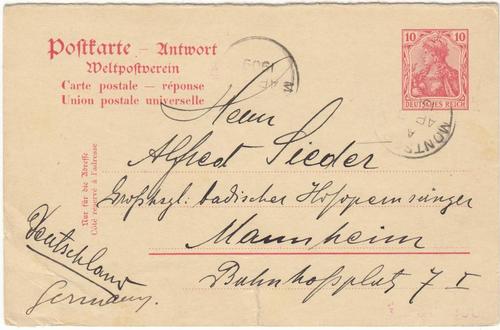 Postkarte – Antwort
Weltpostverein
Carte postale – réponse
Union postale universelle
10 10
DEUTSCHES REICH
AP
1909
M
MONTR
AP
Nur für die Adresse
Côté réservé à l'adresse
Herrn
Alfred Sieder
Großhzgl. badischer Hofopernsänger
Mannheim
Bahnhofsplatz 7 I
Deutschland
Germany.